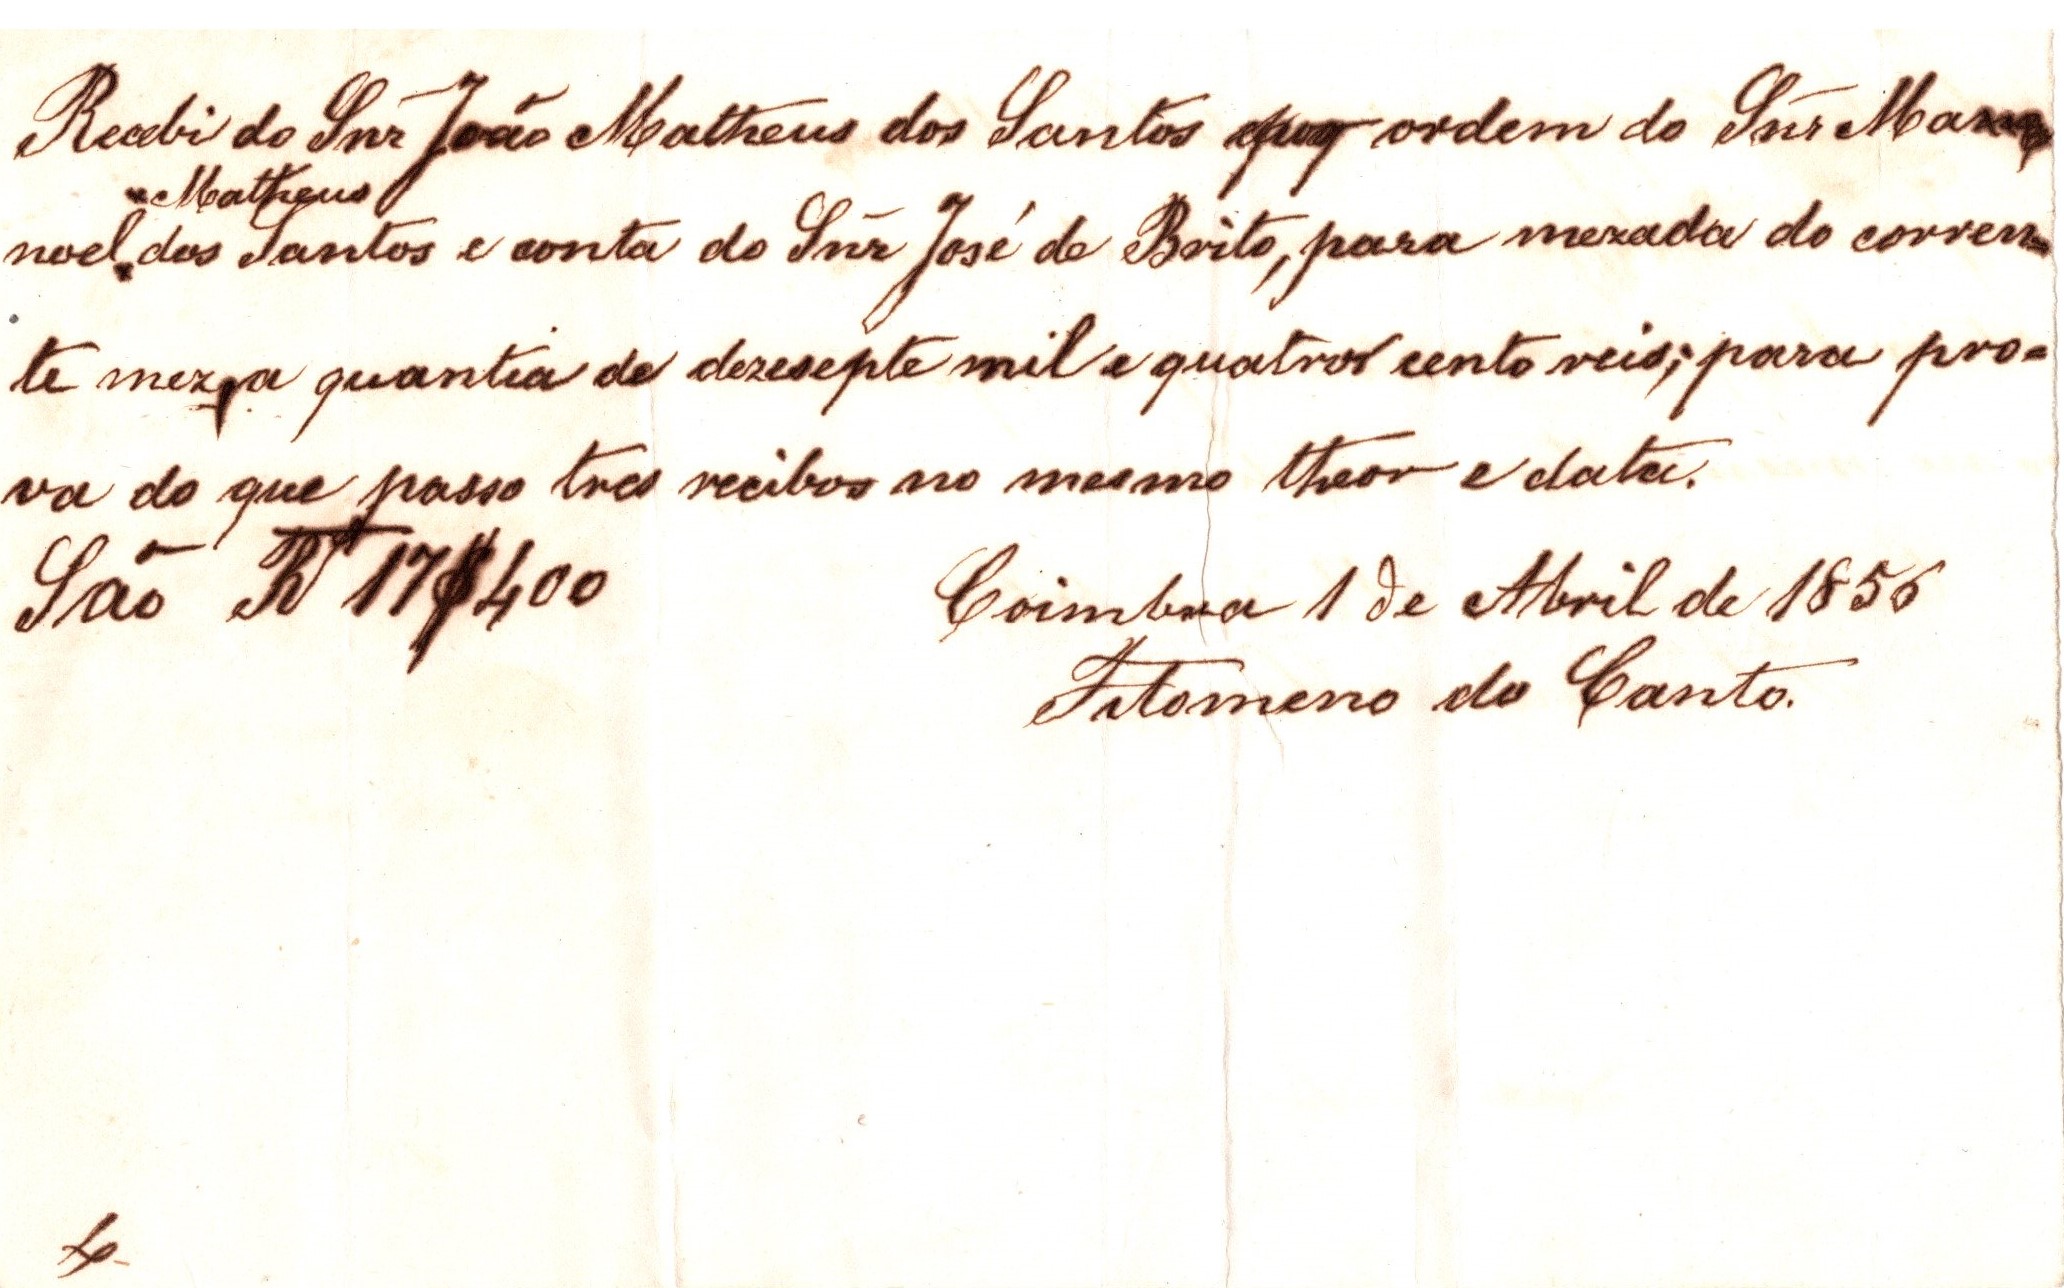 Recebi do Snr João Matheus dos Santos por ordem do Snr Ma=
Matheus
noel dos Santos e conta do Snr José de Brito, para mezada do corren=
te mez, a quantia de dezesepte mil e quatros cento reis; para pro=
va do que passo tres recibos no mesmo theor e data.
São Rs 17$400 Coimbra 1 de Abril de 1856
Filomeno do Canto.